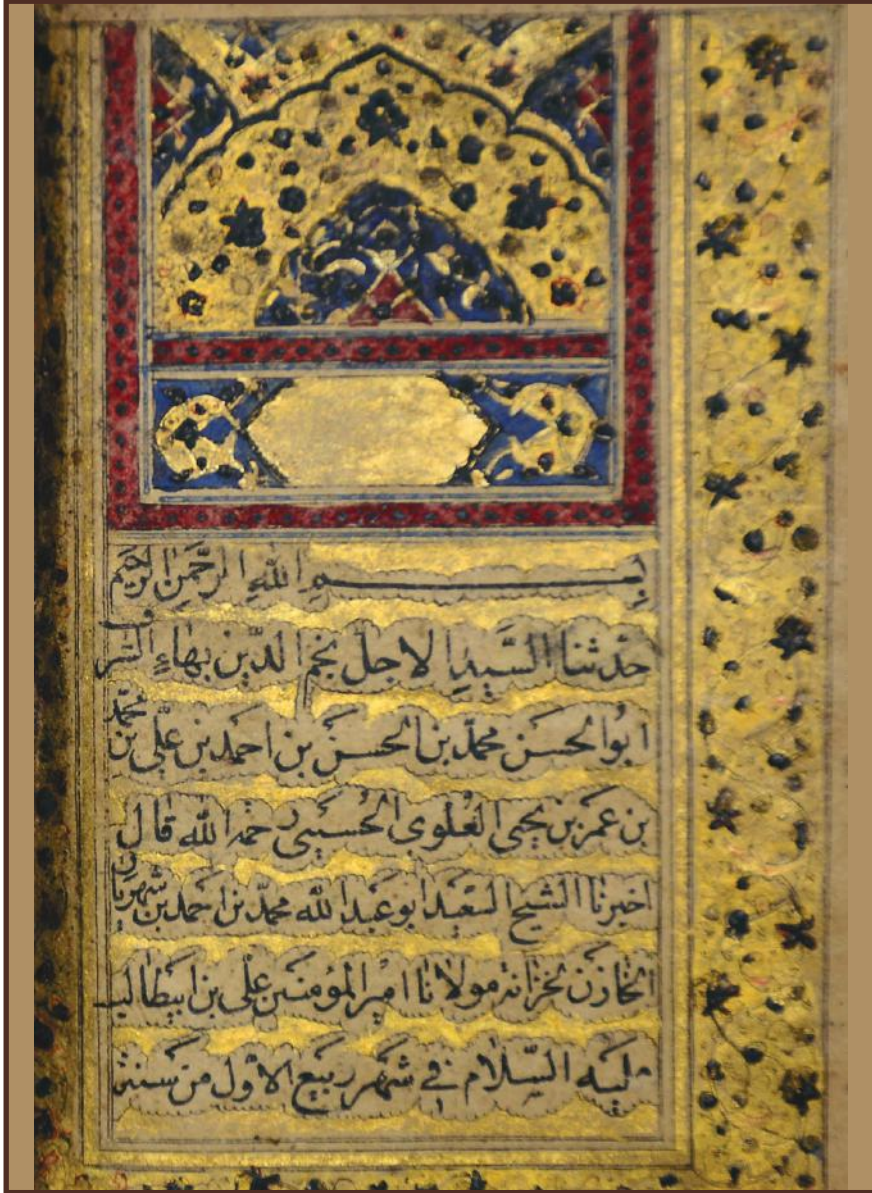 بِسْمِ اللهِ الرَّحْمٰنِ الرَّحِيمِ
حدثنا السَّيدِ الاجل نجم الدّين بهاءِ الشرف
ابوالحسن محمّد بن الحسن بن احمد بن علّى بن محمّد
بن عمر بن يحيى العلوى الحُسينى رحمه الله قال
اخبرنا الشيخ السّعيد ابو عبد الله محمّد بن احمد بن شهريار
الخازن لخزانة مولانا امير المؤمنين على بن ابيطالب
عليه السّلام في شهر ربيع الاوّل من سنة